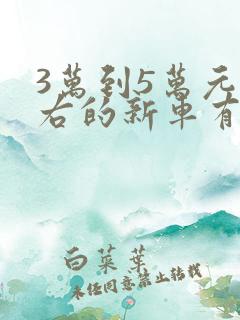 3萬到5萬元
右的新車有
白菜葉
未经同意禁止转载